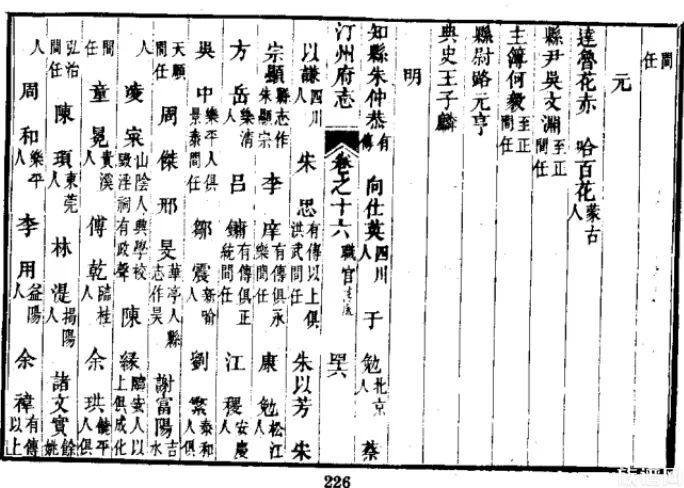 間
任
元
達魯花赤 哈百花 蒙古人
縣尹吳文淵 至正間任
主簿何毅 至正間任
縣尉路元亨
典史王子麟
明
知縣朱仲恭 有傳 向仕英 四川人 于勉 北京人 蔡
汀州府志 卷之十六 職官 四六
以謙 四川人 朱思 有傳以上俱洪武間任 朱以芳 朱
宗顯 縣志作朱顯宗 李庠 有傳俱永樂間任 康勉 松江人
方岳 樂清人 呂鏞 有傳俱正統間任 江稷 安慶人
吳中 樂平人俱景泰間任 鄒震 新喻人 劉繁 泰和人俱
天順間任 周傑 邢旻 華亭人縣志作昊 謝富陽 吉水
人 凌寀 山陰人興學校毀淫祠有政聲 陳緣 臨安人以上俱成化
間任 童冕 貴溪人 傅乾 臨桂人 余珙 饒平人俱
弘治間任 陳頊 東莞人 林湜 揭陽人 諸文實 餘姚
人 周和 樂平人 李用 益陽人 余禕 有傳以上
226